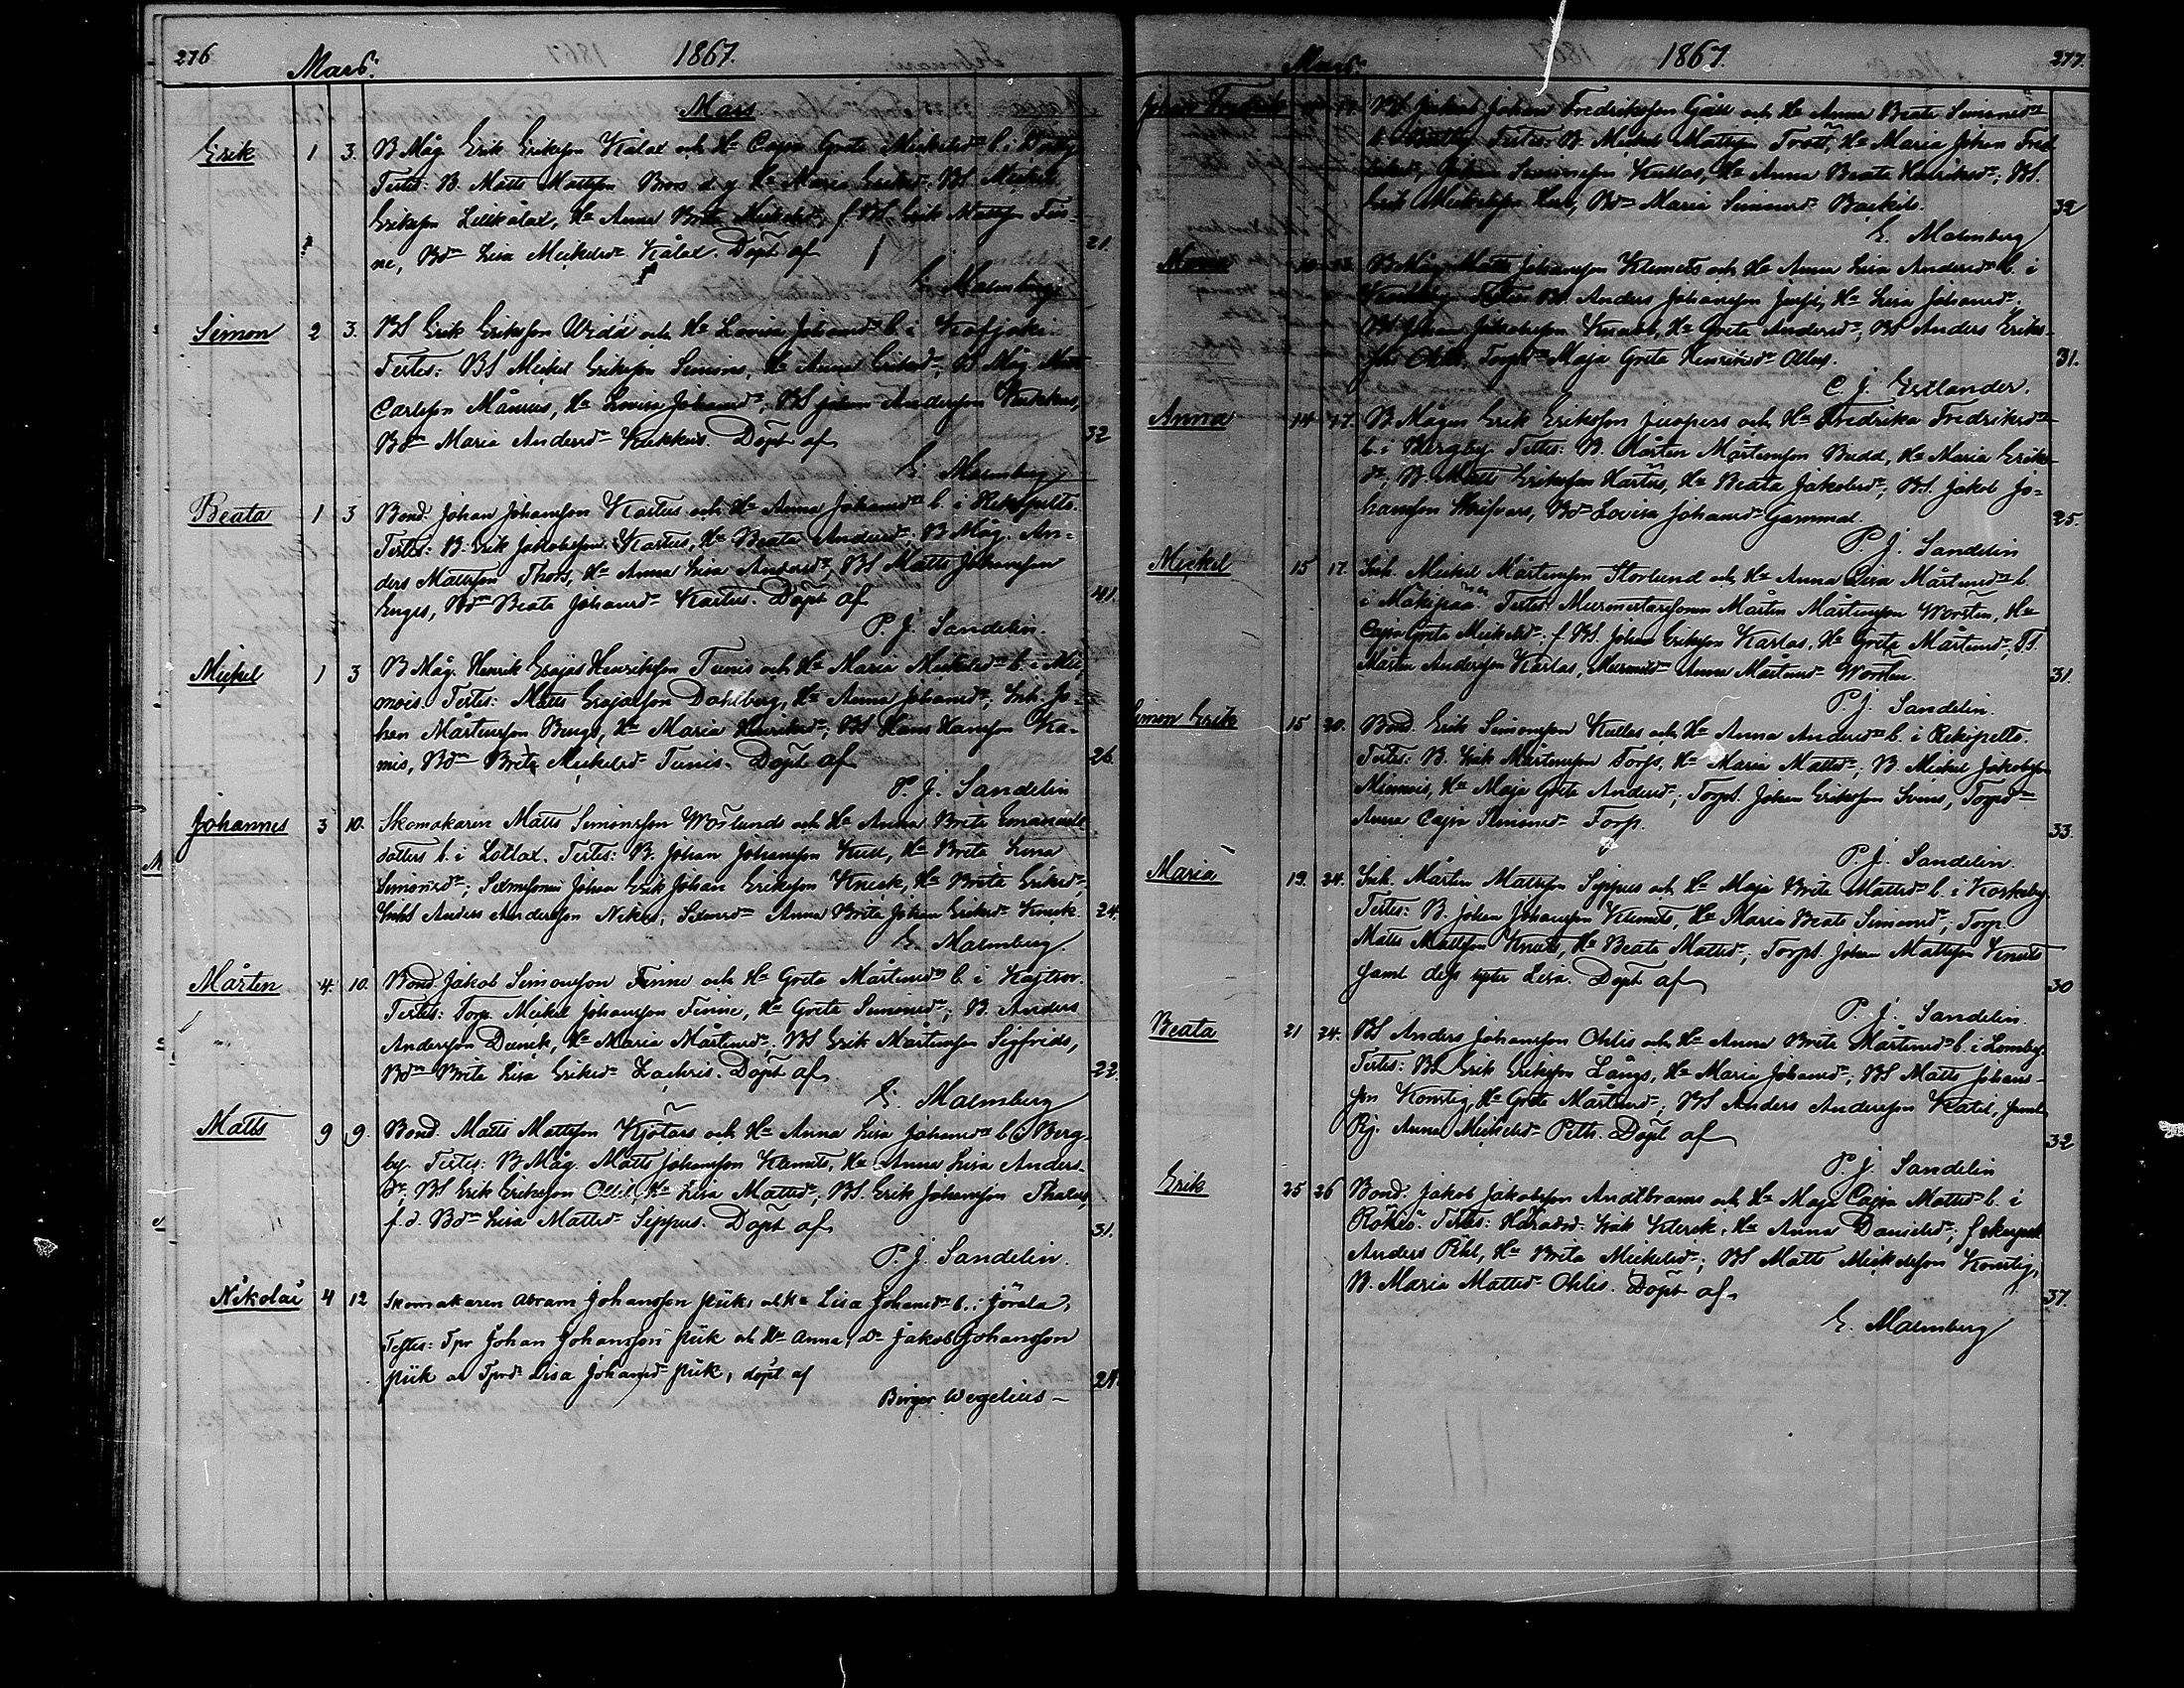 276 Mars. 1867.
Mars
Erik 1 3. B Måg Erik Eriksson Kålax och Hu Cajsa Greta Mickelsdr b. i
Testes: B. Matts Mattsson Brors d. y Hu Maria Eriksdr; BS Mickel
Eriksson Lillkålax, Hu Anna Brita Mickelsdr, f BS. Erik Mattsson Fin-
ne, Bdr Lisa Mickelsdr Kålax. Döpt af 21.
E. Malmberg
Simon 2 3. BS Erik Eriksson Widd och Hu Lovisa Johansdr b. i Kofjoki
Testes: BS Mickel Eriksson Simons, Hu Anna Eriksdr; B Måg Matts
Carlsson Månus, Hu Lovisa Johansdr; BS Johan Andersson Kukkus,
Bdr Maria Andersdr Kukkus. Döpt af 32
E. Malmberg
Beata 1 3 Bond. Johan Johansson Kartus och Hu Anna Johansdr b. i Rekipelto.
Testes: B. Erik Jakobsson Kartus, Hu Beata Andersdr; B Måg. An-
ders Mattsson Thors, Hu Anna Lisa Andersdr; BS Matts Johansson
Enges, Bdr Beata Johansdr Kartus. Döpt af 41.
P. J. Sandelin.
Mickel 1 3 B Måg. Henrik Esajas Henriksson Tunis och Hu Maria Mickelsdr b. i Mie-
mois. Testes: Matts Esajasson Dahlberg, Hu Anna Johansdr; Inh. Jo-
han Mårtensson Bengs, Hu Maria Henriksdr; BS Hans Hansson Ka-
mis, Bdr Brita Mickelsdr Tunis. Döpt af 26.
P. J. Sandelin
Johannes 3 10. Skomakaren Matts Simonsson Worlunds och Hu Anna Brita Emanuels
dotters b. i Lotlax. Testes: B. Johan Johansson Knut, Hu Brita Lena
Simonsdr; Sexmssonen Johan Erik Johan Eriksson Knusk, Hu Brita Eriksdr,
Inhs Anders Andersson Nikos, Sexmsdr Anna Brita Johan Eriksdr Knusk. 24.
E. Malmberg.
Mårten 4. 10. Bond. Jakob Simonsson Finne och Hu Greta Mårtensdr b. i Kaitsor.
Testes: Torp. Mickel Johansson Finne, Hu Greta Simonsdr; B. Anders
Andersson Dunck, Hu Maria Mårtensdr; BS Erik Mårtensson Sigfrids,
Bdr Brita Lisa Eriksdr Zachris. Döpt af 22.
E. Malmberg
Matts 9 9. Bond. Matts Mattsson Kjötars och Hu Anna Lisa Johansdr b. i Berg-
by. Testes: B Måg. Matts Johansson Klemets, Hu Anna Lisa Anders-
dr, BS Erik Eriksson Ollil, Hu Lisa Mattsdr; BS. Erik Johansson Thalus,
f. d. Bdr Lisa Mattsdr Seppus. Döpt af 31.
P. J. Sandelin.
Nikolai 4 12 Skomakaren Abram Johansson Piik, o Hu Lisa Johansdr b. i Jörala,
Testes: Tpr Johan Johansson Piik och Hu Anna, dr Jakob Johansson
Piik o Tprdr Lisa Johansdr Piik, döpt af 24.
Birger Wegelius
Mars. 1867. 277.
Johan Fredrik BS Johan Johan Fredriksson Gåll och Hu Anna Beata Simonsdr
Testes: B. Mickel Mattsson Trott, Hu Maria Johan Fred
Johan Simonsson Kullas, Hu Anna Beata Henriksdr; BS.
Erik Mickelsson Bdr Maria Simonsdr Backils. 39
E. Malmberg
B Måg Matts Johansson Klemets och Hu Anna Lisa Andersdr b. i
Testes BS. Anders Johansson Hu Lisa Johansdr.
BS Johan Jakobsson Knuts, Hu Greta Andersdr; BS Anders Eriks-
son Ollil, Torpdr Maja Greta Henriksdr Ollus. 31.
C. J. Estlander.
Anna 14 17. B. Mågen Erik Eriksson Juopers och Hu Fredrika Fredriksdr
b. i Bergby. Testes: B. Mårten Mårtensson Budd, Hu Maria Eriks-
dr; B. Matts Eriksson Kartus, Hu Beata Jakobsdr; BS. Jakob Jo-
hansson Skrifvars, Bdr Lovisa Johansdr Gammal. 25.
P. J. Sandelin
Mickel 15 17. Inh. Mickel Mårtensson Storlund och Hu Anna Lisa Mårtensdr b.
i Mäkipää. Testes: Murmestaresonen Mårten Mårtensson Worsten, Hu
Cajsa Greta Mickelsdr; f. BS. Johan Eriksson Karlas, Hu Greta Mårtensdr; TS.
Mårten Andersson Karlas, Murmdr Anna Mårtensdr Worsten. 31.
P. J. Sandelin.
Simon Erik 15 20. Bond. Erik Simonsson Kullas och Hu Anna Andersdr b. i Rekipelto.
Testes: B. Isak Mårtensson Torps, Hu Maria Mattsdr; B. Mickel Jakobsson
Miemois, Hu Maja Greta Andersdr; Torps. Johan Eriksson Svens, Torpdr
Anna Cajsa Simonsdr Torp. 33.
P. J. Sandelin.
Maria 19. 24. Inh. Mårten Mattsson Seppus och Hu Maja Brita Mattsdr b. i Koskeby.
Testes: B. Johan Johansson Klemets, Hu Maria Beata Simonsdr; Torp.
Matts Mattsson Knuts, Hu Beata Mattsdr; Torps. Johan Mattsson Knuts
samt dess syster Lisa. Döpt af 30
P. J. Sandelin.
Beata 21 24. BS Anders Johansson Ohlis och Hu Anna Brita Mårtensdr b. i Lomby.
Testes: BS Erik Eriksson Långs, Hu Maria Johansdr; BS Matts Johans-
son Konstig, Hu Greta Mårtensdr; BS Anders Andersson Katil, samt
Pig. Anna Mickelsdr Peth. Döpt af 32
P. J. Sandelin
Erik 25 26 Bond. Jakob Jakobsson Andtbrams och Hu Maja Cajsa Mattsdr b. i
Rökiö. Testes: Häradsd. Isak Klerck, Hu Anna Danielsdr;
Anders Pihl, Hu Brita Mickelsdr; BS Matts Mickelsson Konstig,
B. Maria Mattsdr Ohlis. Döpt af 37.
E. Malmberg